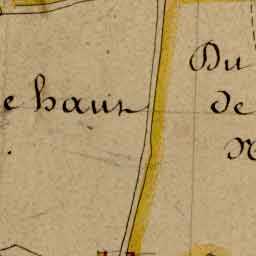 e haut
Du
de